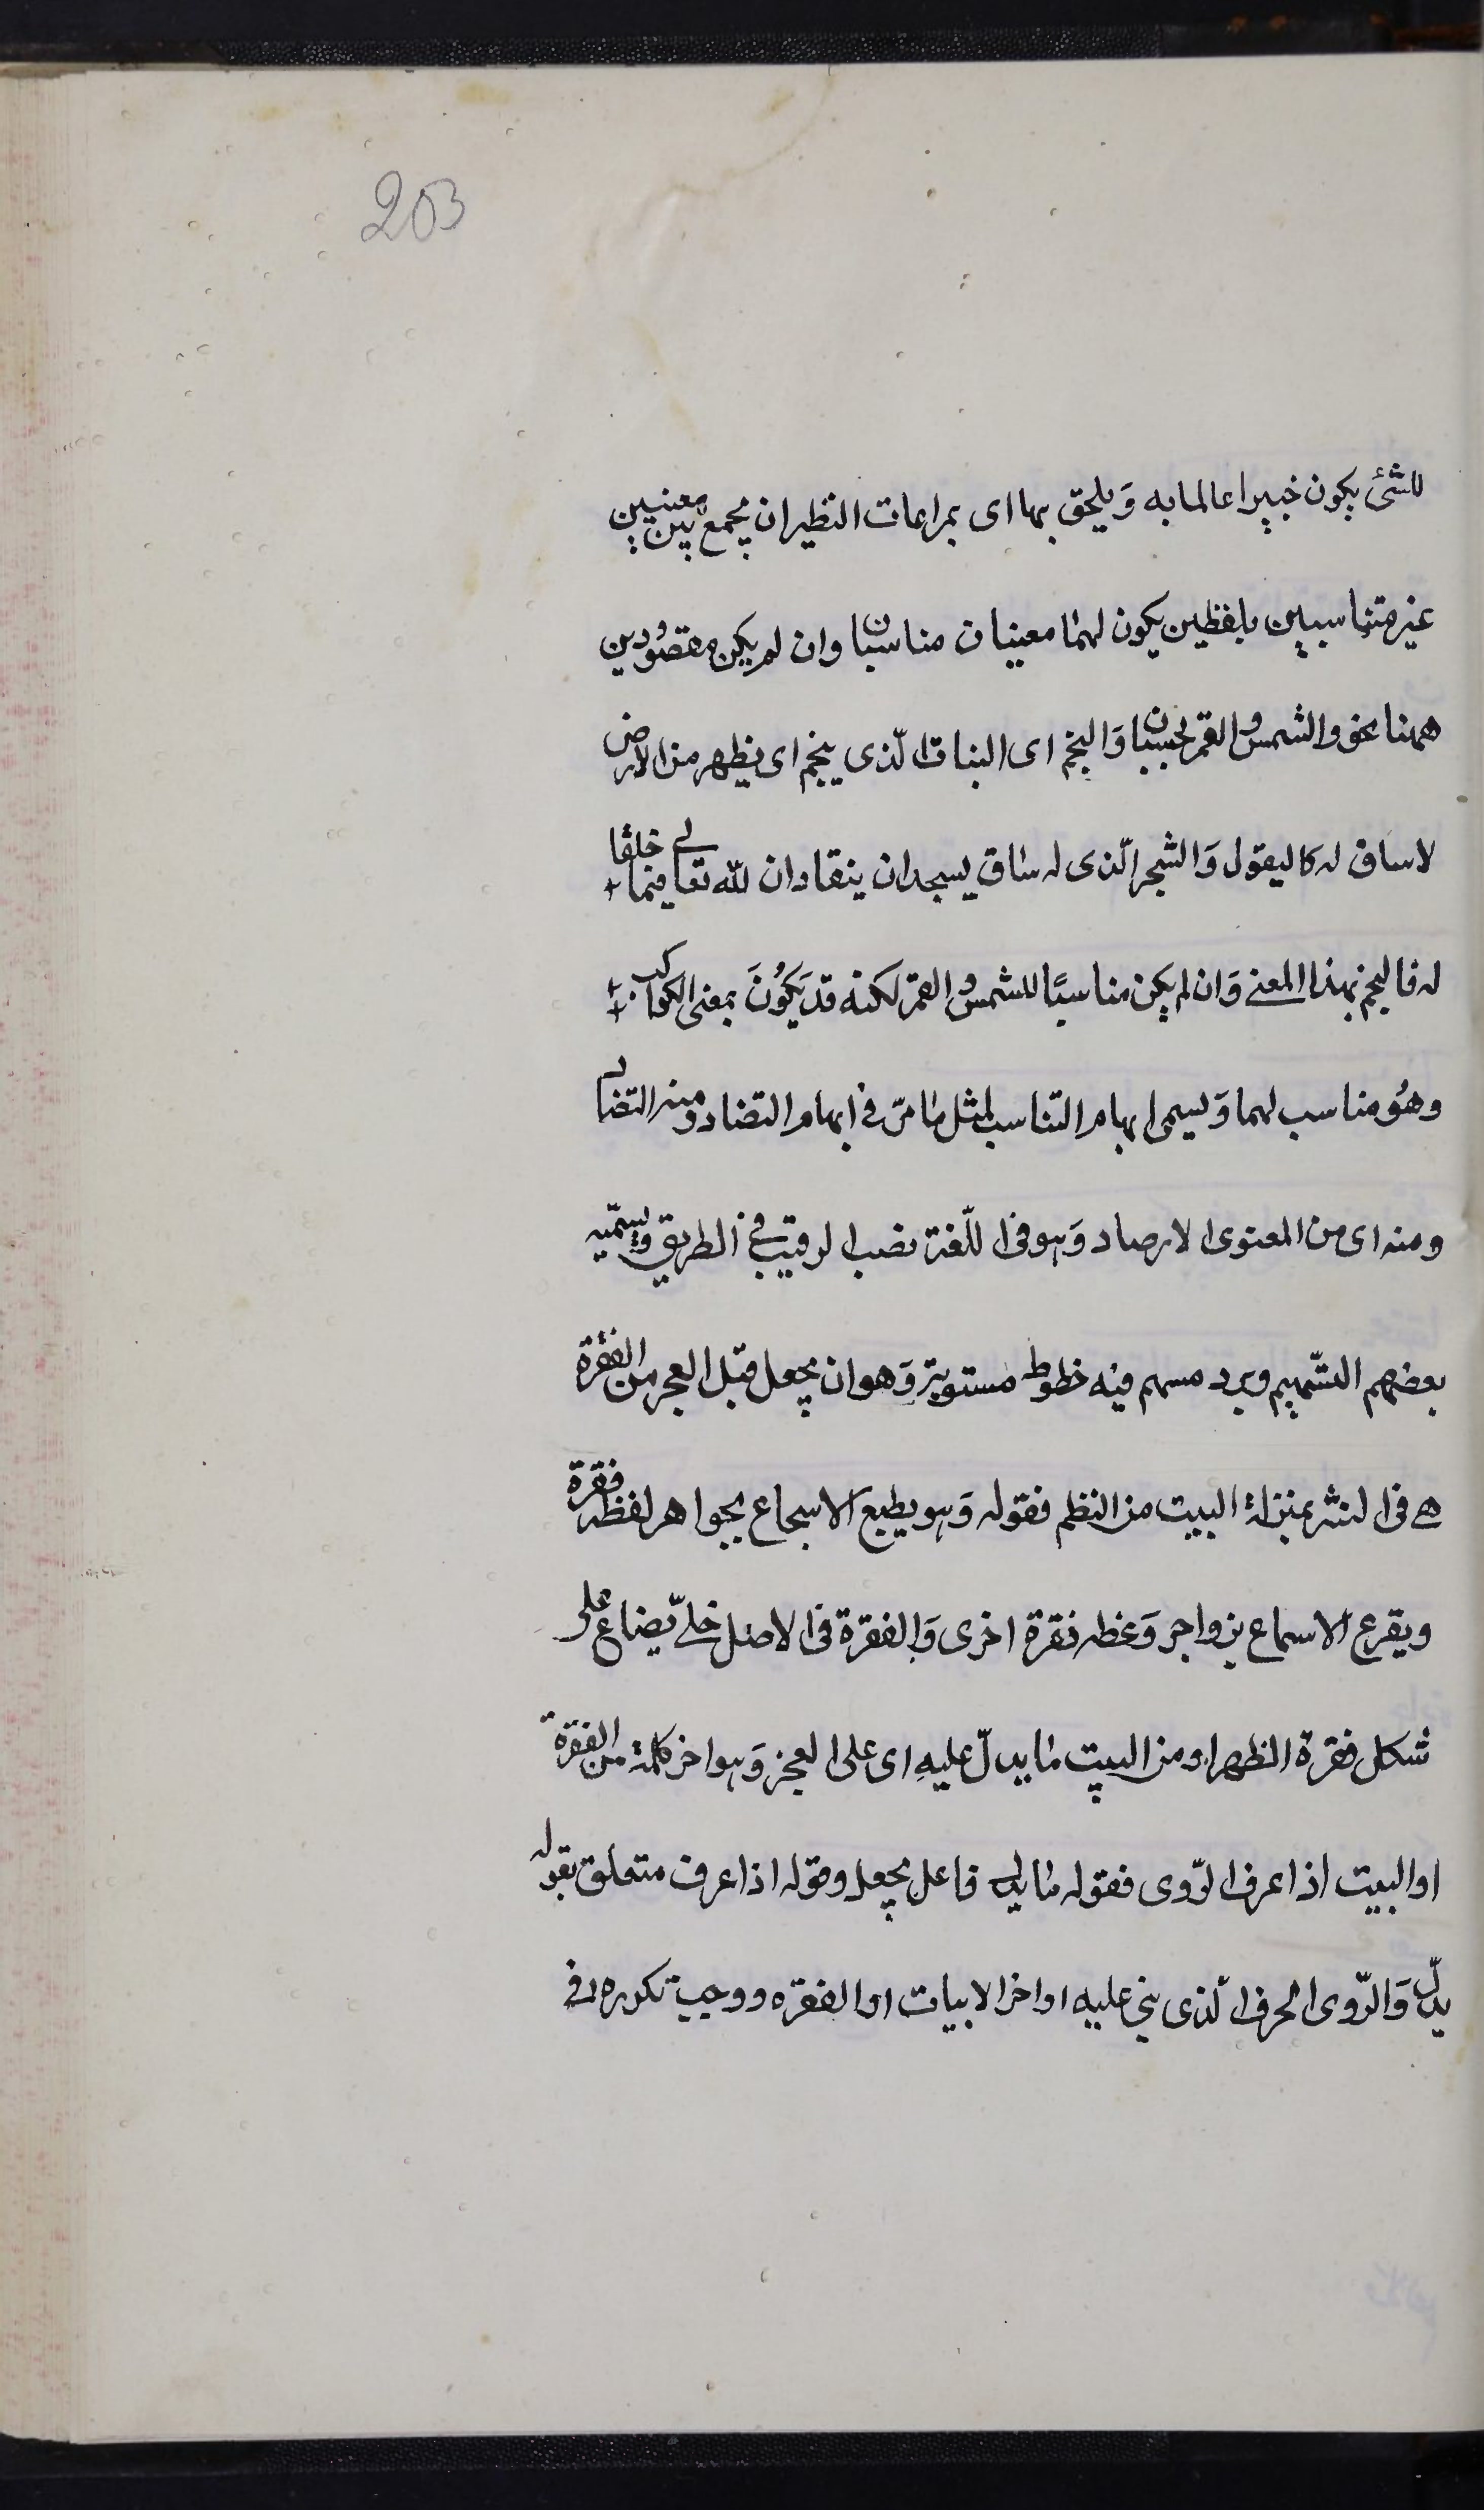 203
للشئ يكون خبيرا عالما به وَيلحق بها اى بمراعات النظير ان يجمع بين معنيين
غير متناسبين بلفظين يكون لهما معنيان مناسبان وان لم يكن مقصُودين
ههنا نحو والشمس والقمر بحسبان وَالنجم اى النبات الّذى ينجم اى يظهر من الارض
لا ساق له كالبقول وَالشجر الّذى له ساق يسجدان ينقادان لله تعالى فيما خلقا
له فالنجم بهذا المعنے وَان لم يكن مناسبًا للشمس والقمر لكنه قد يَكُونَ بمعنى الكواكب
وهُو مناسب لهما وَيسمى ايهام التناسب لمثل ما مرّ فى ايهام التضاد ومنه التضاد
ومنه اى من المعنوى الارصاد وَهو فى اللّغة نصب الرقيب فى الطريق ويسمّيه
بعضهم التسّهيم وبرد مسهم فيه خطوط مستوية وَهو ان يجعل قبل العجز من الفقرة
هے فى النثر بمنزلة البيت من النظم فقوله وَهو يطبع الاسجاع بجواهر لفظه فقرة
ويقرع الاسماع بزواجر وَعظه فقرة اخرى وَالفقرة فى الاصل حلىّ يصاغ على
شكل فقرة الظهر او من البيت ما يدلّ عليهِ اى على العجز وَهو اخر كلمة من الفقرة
او البيت اذا عرف الرّوى فقوله ما يدل فاعل يجعل وقوله اذا عرف متعلق بقوله
يدلّ وَالرّوى الحرف الّذى بنى عليه اواخر الابيات او الفقره ووجب تكرره فى